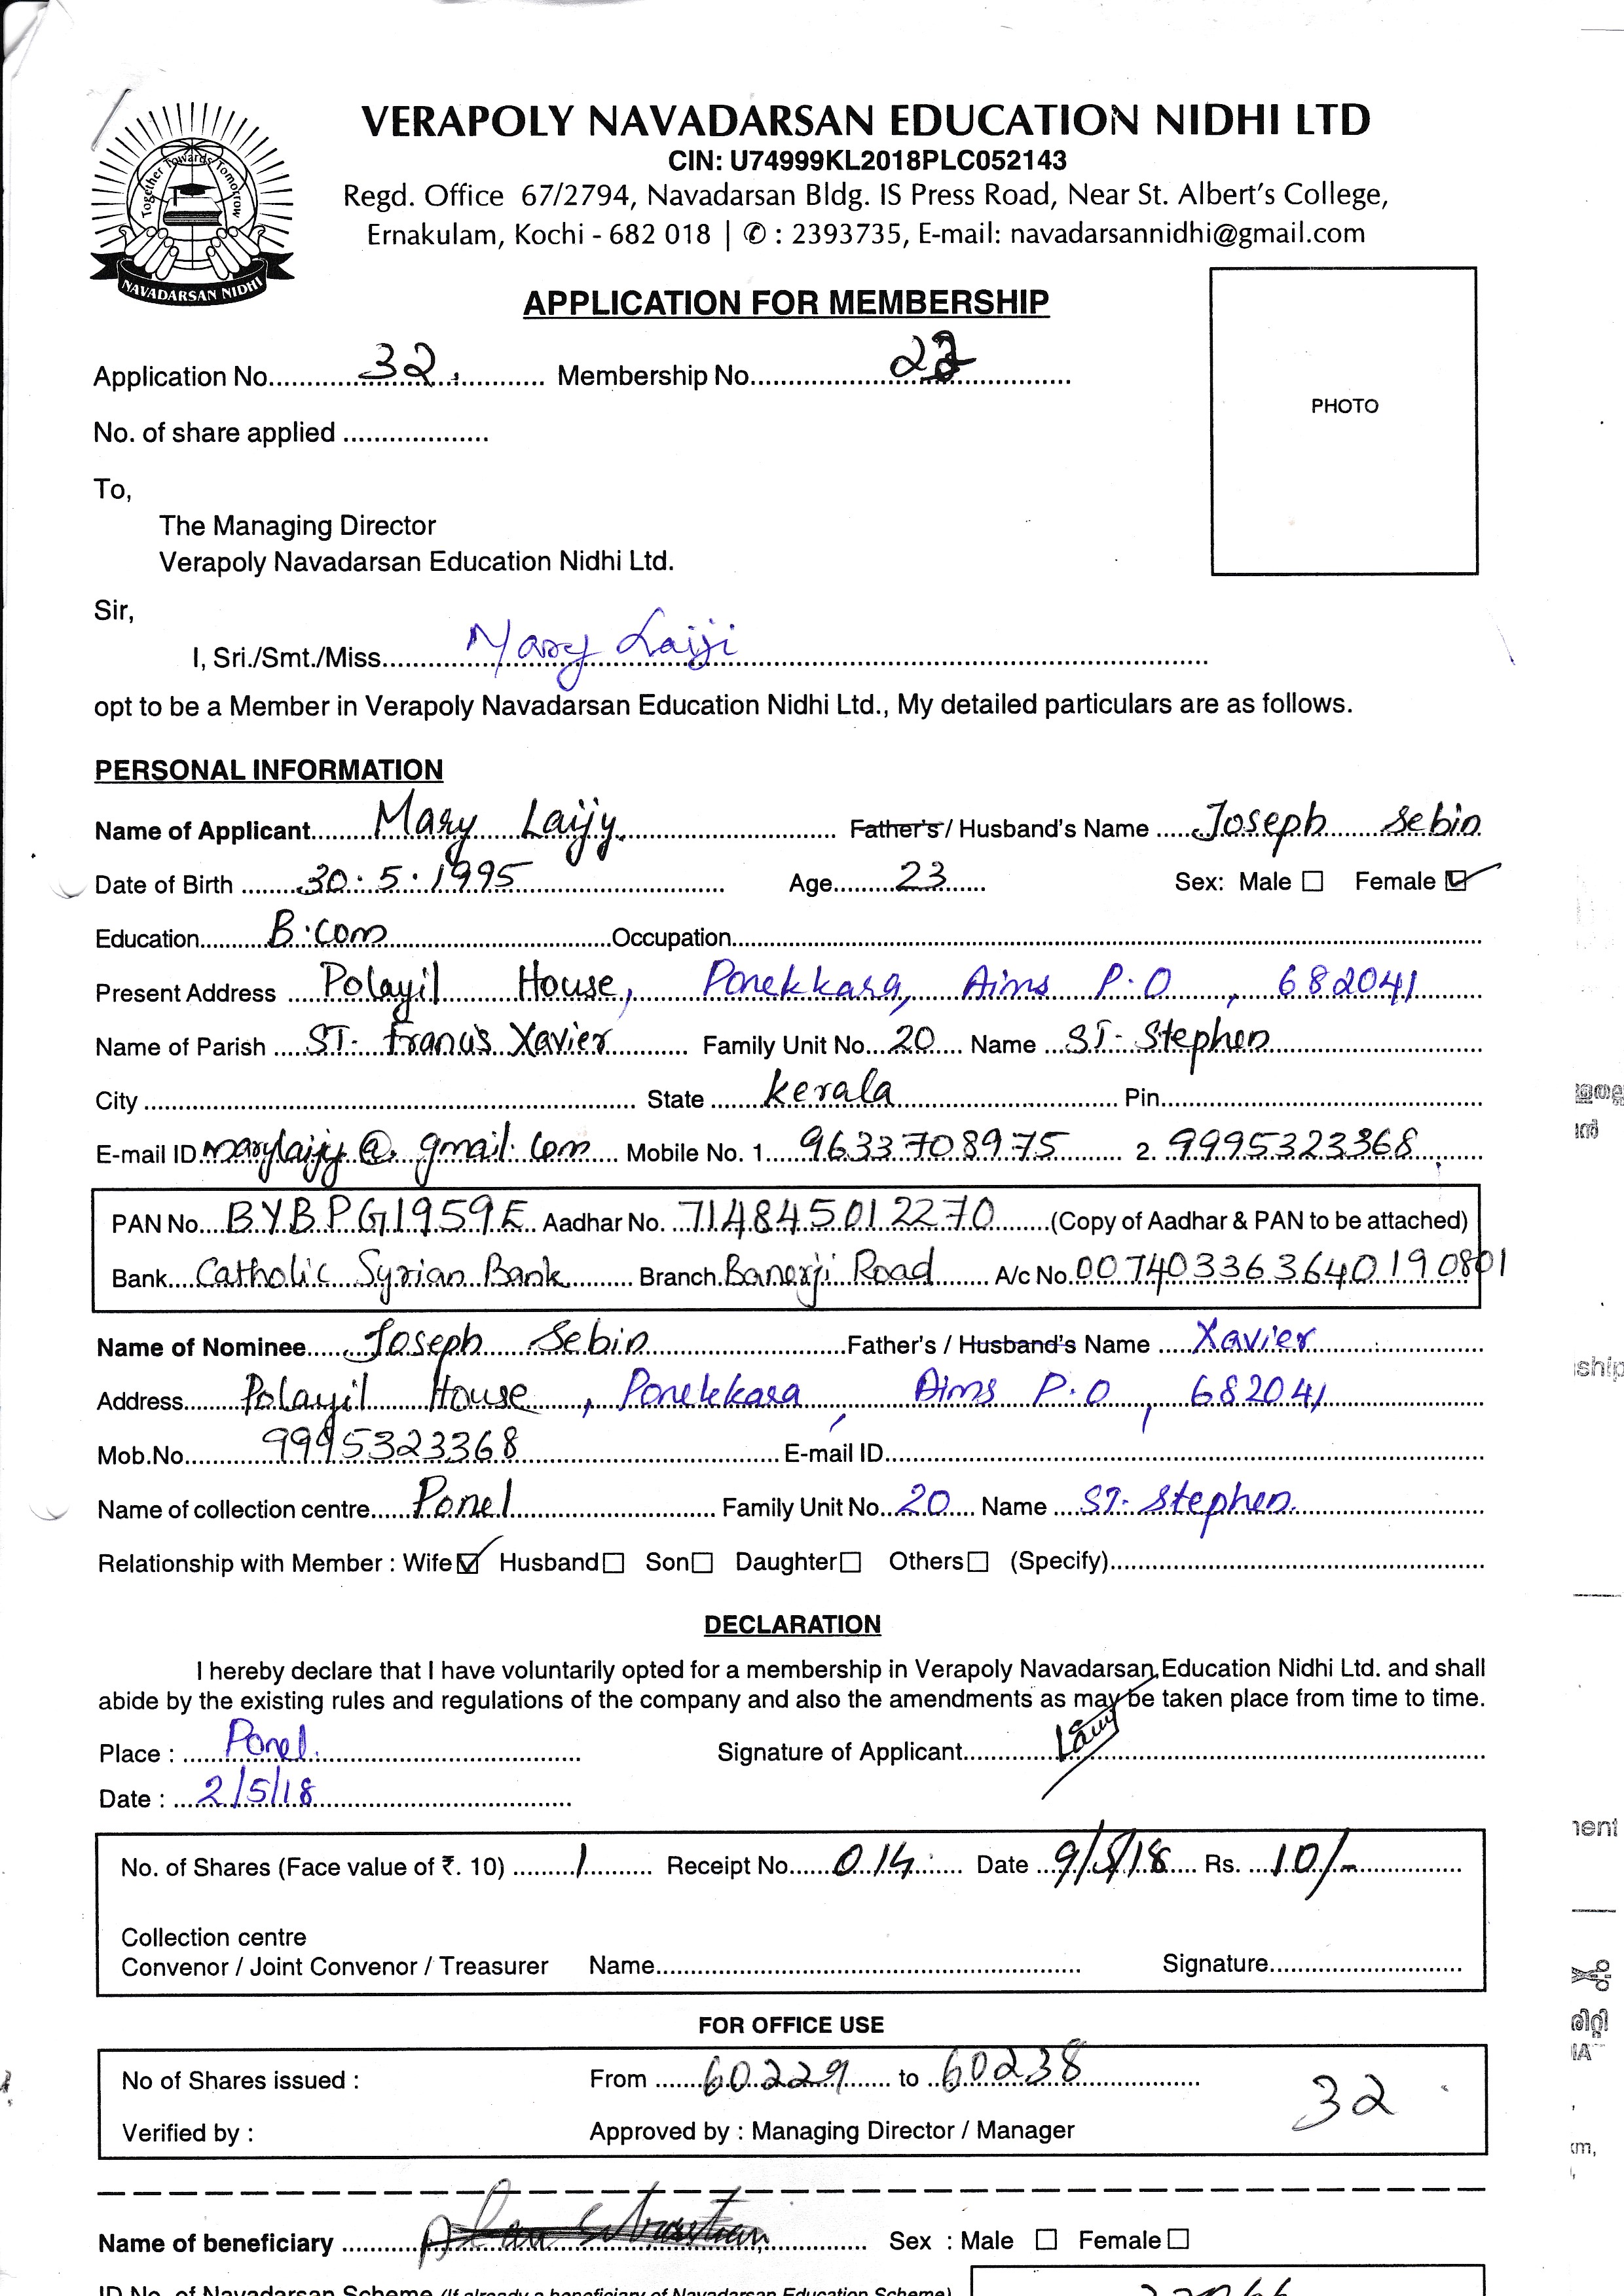 Together Towards Tomorrow
NAVADARSAN NIDHI
VERAPOLY NAVADARSAN EDUCATION NIDHI LTD
CIN: U74999KL2018PLC052143
Regd. Office 67/2794, Navadarsan Bldg. IS Press Road, Near St. Albert's College,
Ernakulam, Kochi - 682 018 | ✆ : 2393735, E-mail: navadarsannidhi@gmail.com
APPLICATION FOR MEMBERSHIP
PHOTO
Application No. 32. Membership No.
No. of share applied
To,
The Managing Director
Verapoly Navadarsan Education Nidhi Ltd.
Sir,
I, Sri./Smt./Miss. Mary Laiji
opt to be a Member in Verapoly Navadarsan Education Nidhi Ltd., My detailed particulars are as follows.
PERSONAL INFORMATION
Name of Applicant Mary Laijy. Father's / Husband's Name Joseph Sebin
Date of Birth 30.5.1995 Age 23 Sex: Male ☐ Female ☑
Education B.Com Occupation
Present Address Polayil House, Ponekkara, Aims P.O, 682041
Name of Parish ST. Francis Xavier Family Unit No. 20 Name ST. Stephen
City State Kerala Pin
E-mail ID marylaijy@gmail.com Mobile No. 1 9633708975 2. 9995323368
PAN No. BYBPG1959E Aadhar No. 714845012270 (Copy of Aadhar & PAN to be attached)
Bank Catholic Syrian Bank Branch Banerji Road A/c No. 00740336364019 0801
Name of Nominee Joseph Sebin Father's / Husband's Name Xavier
Address Polayil House, Ponekkara, Aims P.O, 682041
Mob.No 9995323368 E-mail ID
Name of collection centre Ponel Family Unit No. 20 Name ST. Stephen.
Relationship with Member : Wife ☑ Husband ☐ Son ☐ Daughter ☐ Others ☐ (Specify)
DECLARATION
I hereby declare that I have voluntarily opted for a membership in Verapoly Navadarsan Education Nidhi Ltd. and shall
abide by the existing rules and regulations of the company and also the amendments as may be taken place from time to time.
Place : Ponel. Signature of Applicant Laijy
Date : 2/5/18
No. of Shares (Face value of ₹. 10) 1 Receipt No. 014 Date 9/5/18 Rs. 10/-
Collection centre
Convenor / Joint Convenor / Treasurer Name Signature
FOR OFFICE USE
No of Shares issued : From 60229 to 60238 32
Verified by : Approved by : Managing Director / Manager
Name of beneficiary Sex : Male ☐ Female ☐
ID No. of Navadarsan Scheme (If already a beneficiary of Navadarsan Education Scheme)